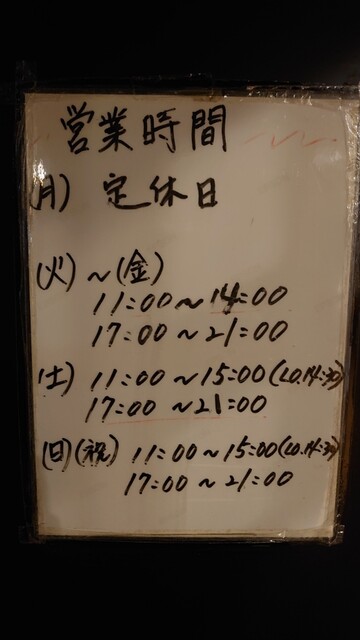 営業時間
(月) 定休日
(火)～(金)
11:00～14:00
17:00～21:00
(土) 11:00～15:00(LO.14:30)
17:00～21:00
(日)(祝) 11:00～15:00(LO.14:30)
17:00～21:00